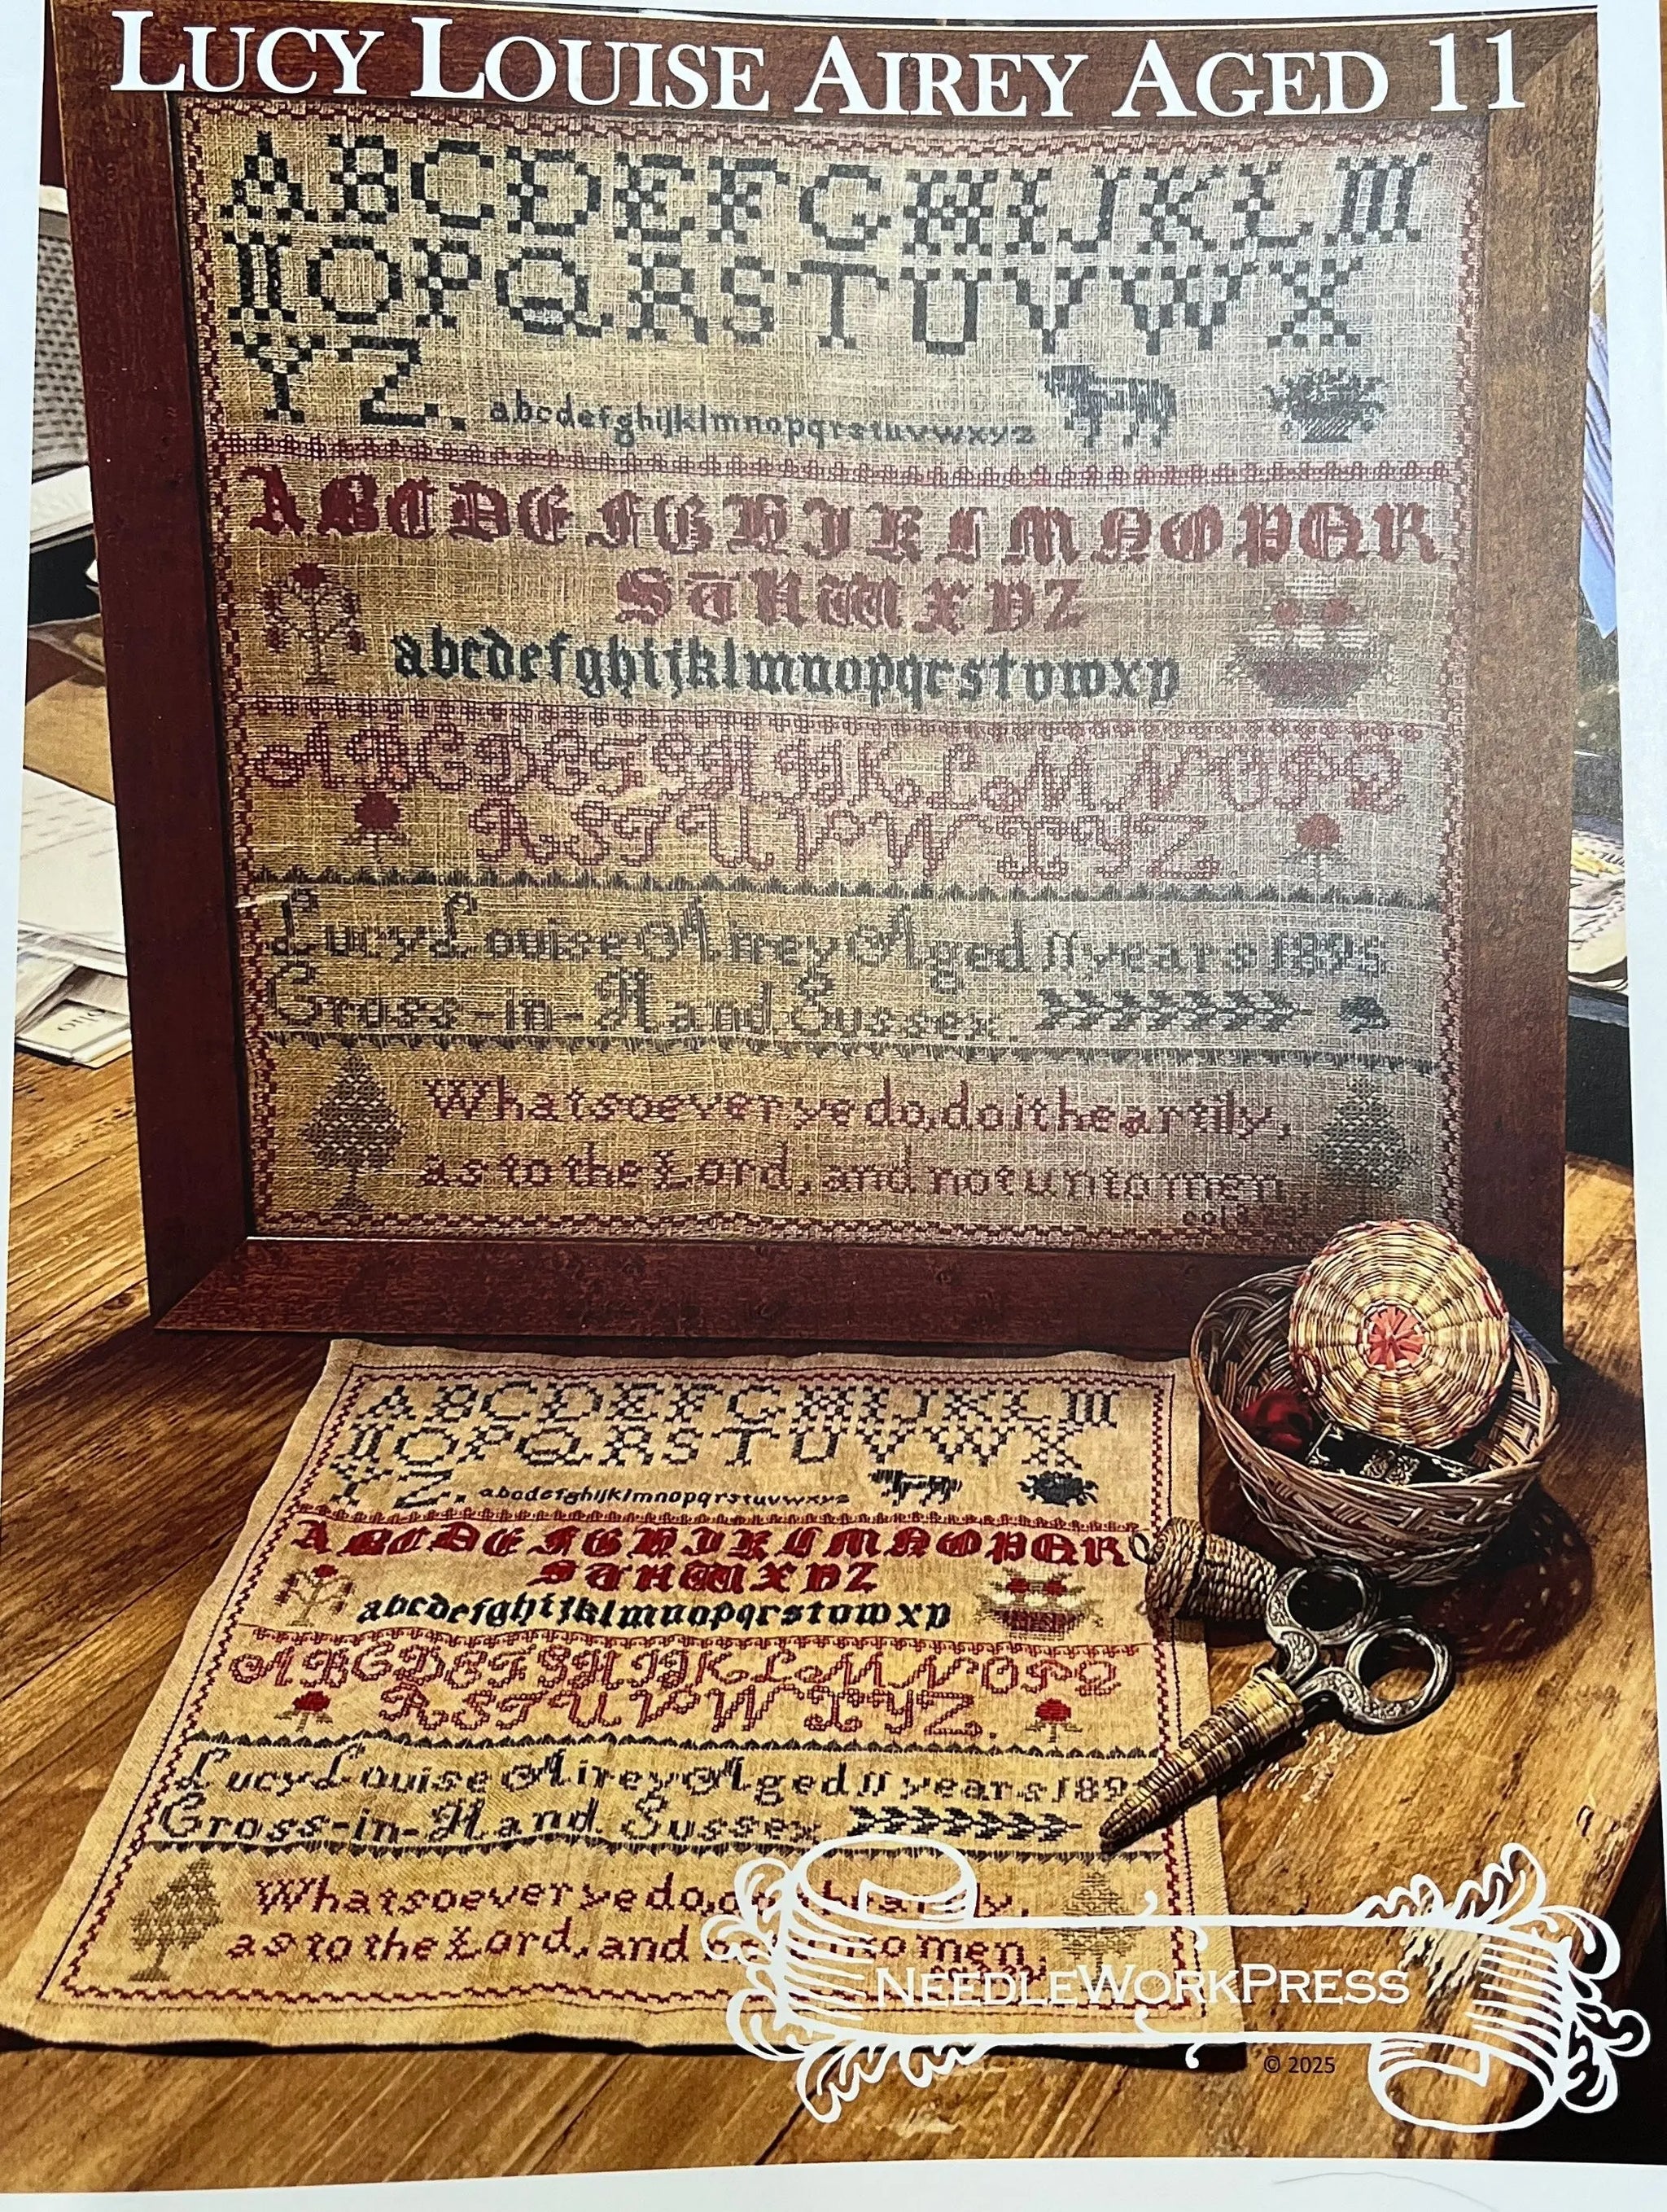 LUCY LOUISE AIREY AGED 11
ABCDEFGHIJKLM
NOPQRSTUVWX
YZ. abcdefghijklmnopqrstuvwxyz
ABCDEFGHIJKLMNOPQR
STUWXYZ
abcdefghijklmnopqrstvwxy
ABCDEFGHIJKLMNOPQ
RSTUVWXYZ.
Lucy Louise Airey Aged 11 years 1895
Cross-in-Hand. Sussex.
Whatsoever ye do, do it heartily,
as to the Lord, and not unto men.
col 3.23
ABCDEFGHIJKLM
NOPQRSTUVWX
YZ. abcdefghijklmnopqrstuvwxyz
ABCDEFGHIJKLMNOPQR
STUWXYZ
abcdefghijklmnopqrstvwxy
ABCDEFGHIJKLMNOPQ
RSTUVWXYZ.
Lucy Louise Airey Aged 11 years 189
Cross-in-Hand. Sussex
Whatsoever ye do, do
as to the Lord, and men.
NEEDLEWORKPRESS
© 2025